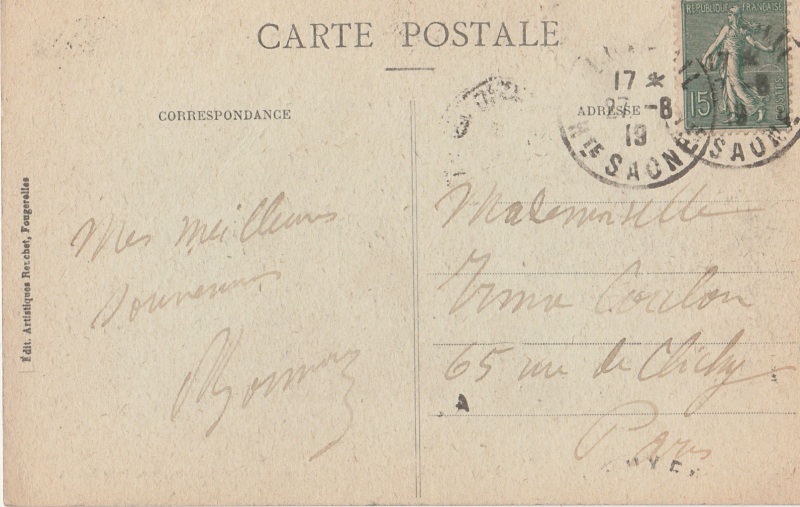 CARTE POSTALE
CORRESPONDANCE
ADRESSE
RÉPUBLIQUE FRANÇAISE
15
17 *
27 -8
19
Hte SAONE
SAONE
Édit. Artistiques Reuchet, Fougerolles
Mes meilleurs
souvenirs
Mademoiselle
Coulon
65 rue de Clichy
Paris
A